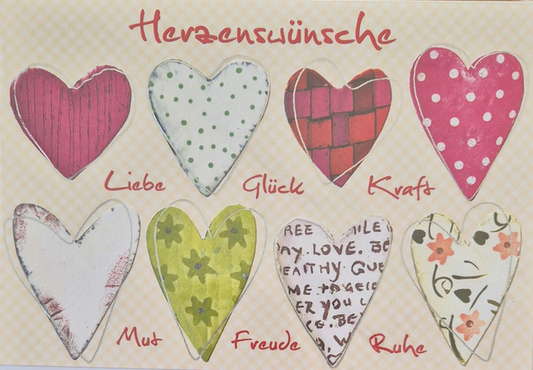 Herzenswünsche
Liebe Glück Kraft
REE MILE
AY. LOVE. BE
EALTHY
ME
ER YOU
BE
Mut Freude Ruhe